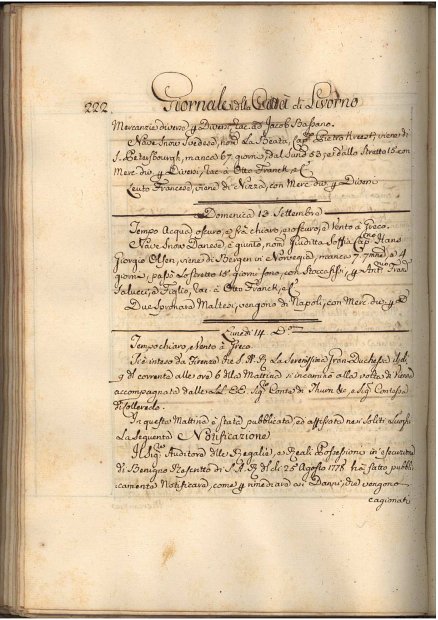 222. Giornale della Città di Livorno
Mercanzie diverse p Diversi, rac. ad Jacob Bassano.
Nave Snow Svedese, nom.ᵃ La Beata, Cap. Pietro, viene di
S. Petersbourgh, manca 67 giorni, dal Sund 53, e dallo Stretto 15. con
Merc. div. p Diversi, rac. a Otto Franck, e C.
Leuto Francese, viene di Nizza, con Merc. div. p Diversi
Domenica 13 Settembre
Tempo Acqua, oscuro, e frà chiaro, e oscuro, e Vento à Greco.
Nave Snow Danese, è giunto, nom. Giuditta Soffia Cap. Hans
Giorgio Olsen, viene di Bergen in Norvegia, manca 7. e 4
giorni, passò lo stretto 15. giorni sono, con Stoccafissi, p Ant. Fran.
Salucci, e Figlio, rac. à Otto Franck, e C.
Due Speronare Maltesi, vengono di Napoli, con Merc. div. p D.
Lunedi 14. D.ᵒ
Tempo chiaro, e Vento à Greco
Si è inteso da Firenze che S. A. R. La Serenissima Gran Duchessa il dì
9 del corrente alle ore 6 della Mattina si incaminò alla volta di Vienna
accompagnata dalle LL. EE. Sig. Conte di Thurn &c, e Sig. Contessa
di Colloredo.
In questa Mattina è stata pubblicata, ed affissata nei Soliti Luoghi
La Seguente Notificazione
Il Sig. Auditore delle Regalie, e Reali Possessioni in esecuzione
di Benigno Rescritto di S. A. R. del dì 25 Agosto 1778 ha fatto pubbli-
camente Notificare, come p rimediare ai Danni, che vengono
cagionati